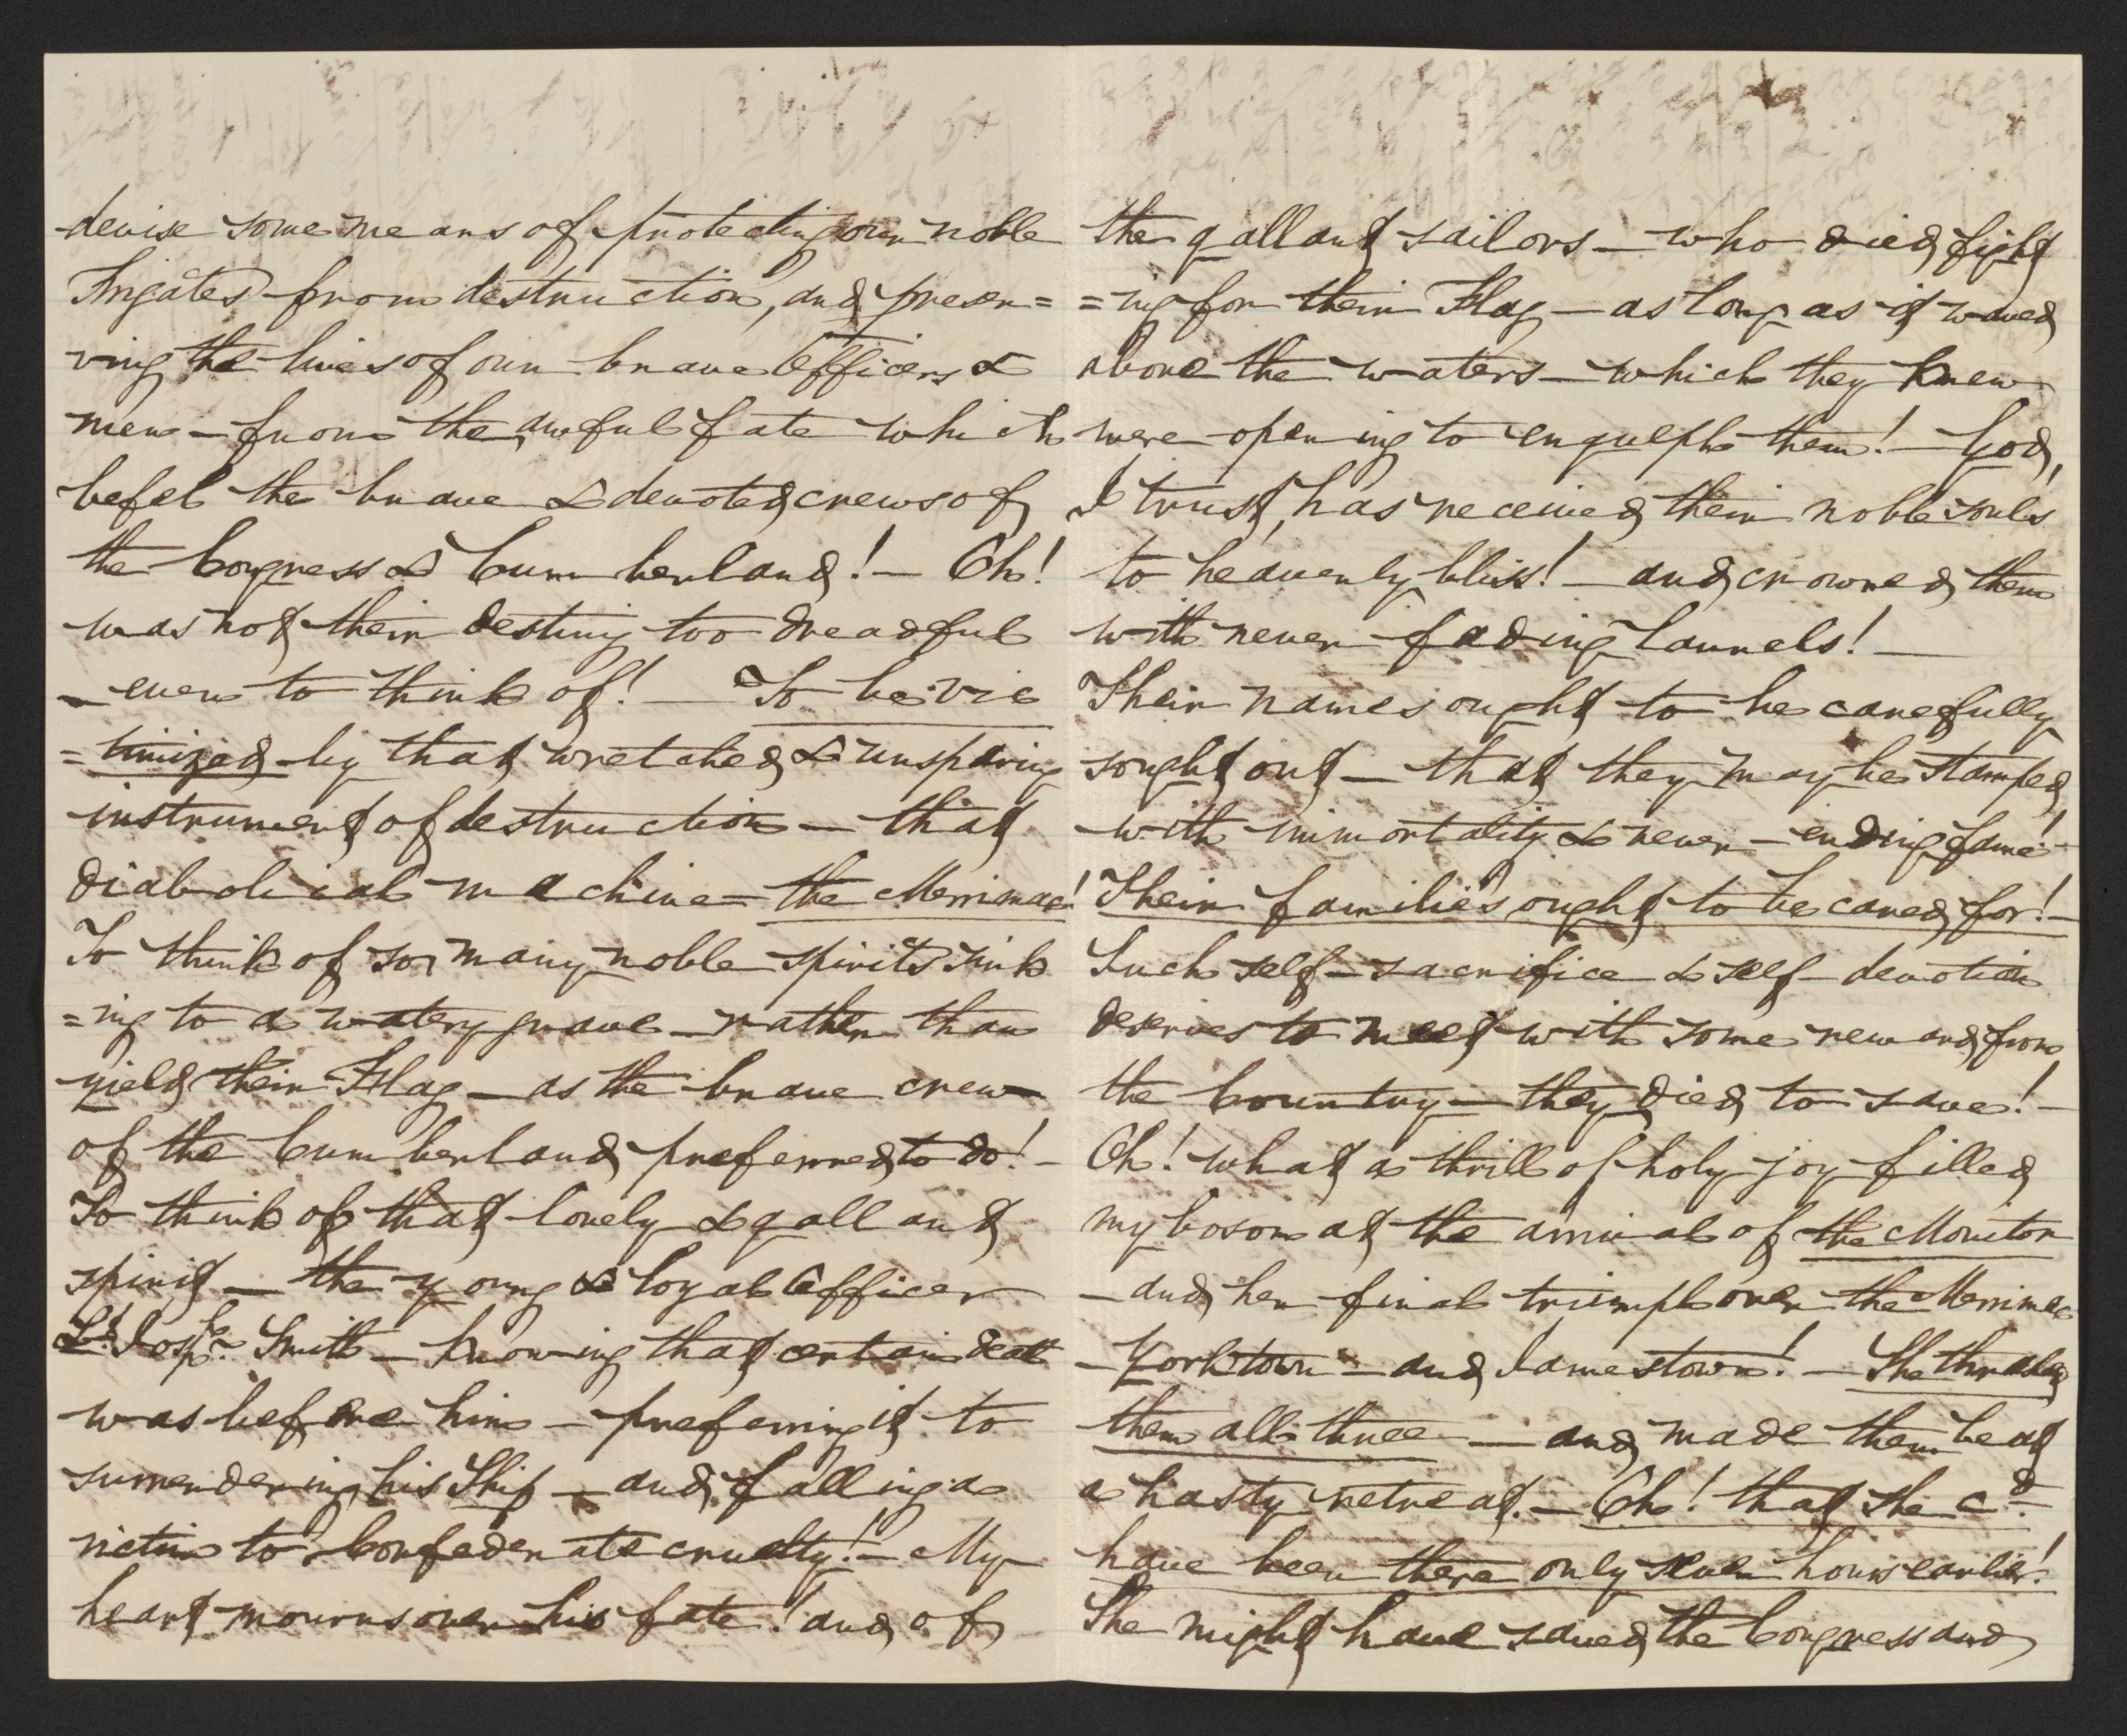 devise some means of protecting our noble
Frigates from destruction, and preser=
ving the lives of our brave Officers &
men – from the awful fate which
befel the brave & devoted crews of
the Congress & Cumberland! – Oh!
was not their destiny too dreadful
– even to think of! – To be vic
=timized by that wretched & unsparing
instrument of destruction – that
diabolical machine = the Merrimac!
To think of so many noble spirits sink
=ing to a watery grave – rather than
yield their Flag – as the brave crew
of the Cumberland preferred to do! –
To think of that lovely & gallant
spirit – the young & loyal Officer
Lt. Josph. Smith – knowing that certain death
was before him – preferring it to
surrendering his Ship – and falling a
victim to Confederate cruelty! – My
heart mourns over his fate! and of
the gallant sailors – who died fight
=ing for their Flag – as long as it waved
above the waters – which they knew
were opening to engulph them! – God,
I trust, has received their noble souls
to heavenly bliss! – and crowned them
with never fading laurels! –
Their names ought to be carefully
sought out – that they may be stamped
with immortality & never – ending fame! –
Their families ought to be cared for! –
Such self – sacrifice & self – devotion
deserves to meet with some reward from
the Country – they died to save! –
Oh! what a thrill of holy joy filled
my bosom at the arrival of the Monitor
– and her final triumph over the Merrimac
– Yorktown – and Jamestown! – She thrashed
them all three – and made them beat
a hasty retreat. – Oh! that she cd.
have been there only seven hours earlier!
She might have saved the Congress and